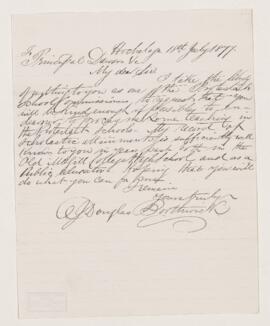 Hochelaga 11th July 1877.
To Principal Dawson &c
My dear Sir
I take the liberty
of writing to you as one of the Protestant
School Commissioners to request that you
will be kind enough possibly to en-
deavour to procure me some teaching in
the Protestant Schools. My record of
Scholastic attainments is sufficiently well
known to you in years back both in the
Old McGill College High School and as a
Public Educator. Hoping that you will
do what you can for
I remain
Yours truly
J Douglas Borthwick